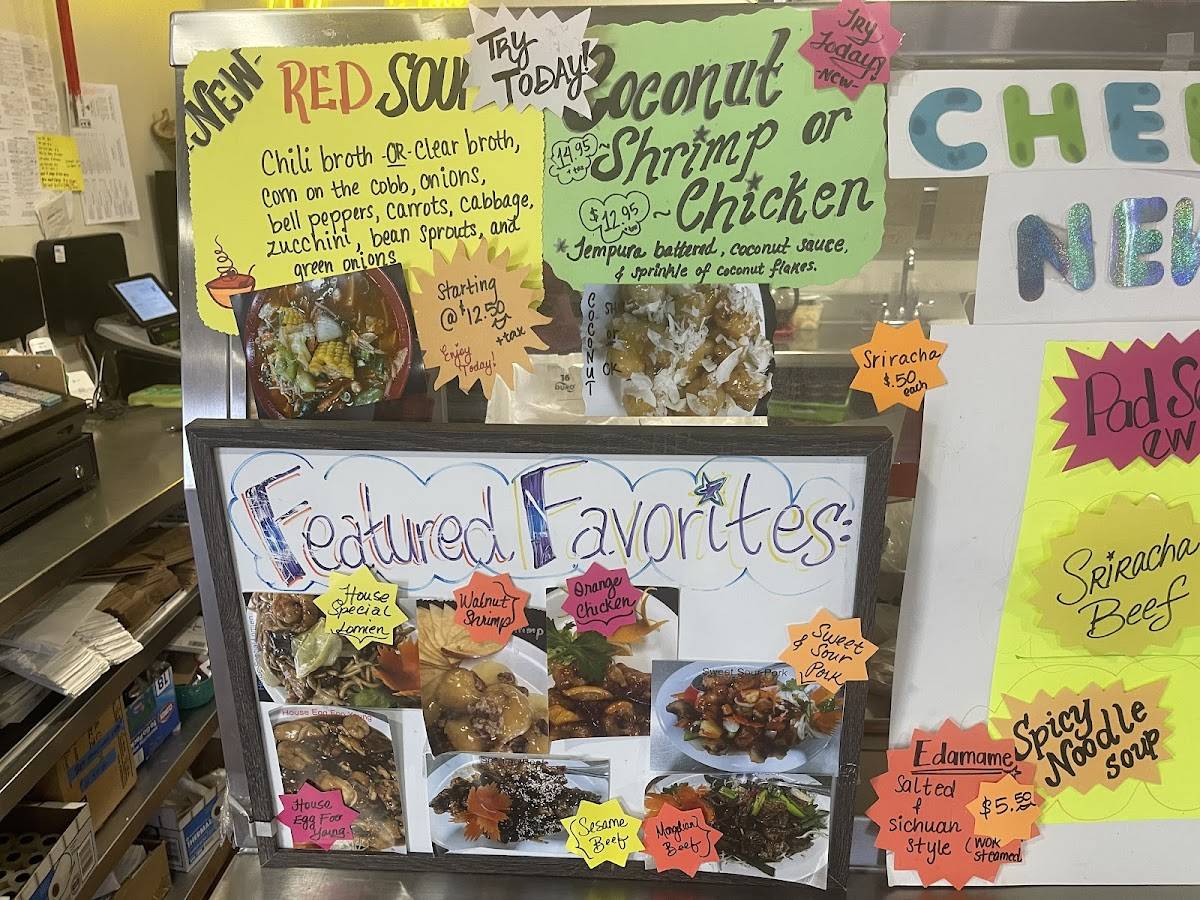 -NEW-
RED SOU
TRY
TODAY!
Chili broth -OR- Clear broth,
corn on the cobb, onions,
bell peppers, carrots, cabbage,
zucchini, bean sprouts, and
green onions
Starting
@ $12.50
+ tax
Enjoy
Today!
Coconut
Shrimp or
Chicken
14.95
+ tax
$12.95
* Tempura battered, coconut sauce,
& sprinkle of coconut flakes.
Try
Today!
-NEW-
COCONUT
Sriracha
$.50
each
CHE
NE
Pad S
Sriracha
Beef
Spicy
Noodle
Soup
Edamame
Salted
&
sichuan
style
$5.50
(wok
steamed
Featured Favorites:
House
Special
Lomien
Walnut
Shrimp
Orange
Chicken
Sweet
& Sour
Pork
Sweet Sour Pork
House Egg Foo Young
House
Egg Foo
Young
Sesame
Beef
Mongolian
Beef